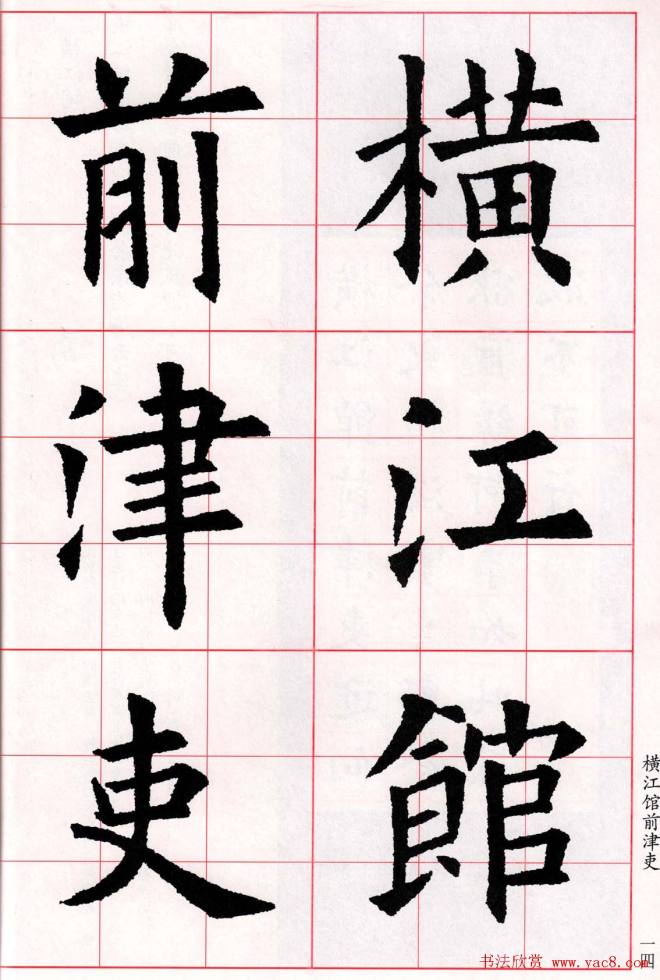 橫江館
前津吏
横江馆前津吏
一四
书法欣赏 www.yac8.com